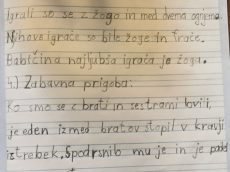 Igrali so se z žogo in med dvema ognjema.
Njihove igrače so bile žoge in frače.
Babičina najljubša igrača je žoga.
4.) Zabavna prigoda:
Ko smo se z brati in sestrami lovili,
je eden izmed bratov stopil v kravji
iztrebek. Spodrsnilo mu je in je padel